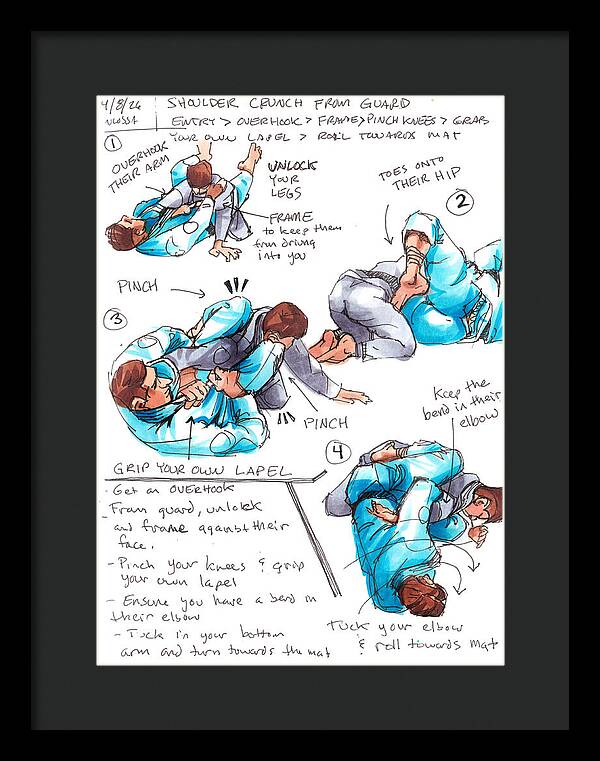 4/8/26
SHOULDER CRUNCH FROM GUARD
ENTRY > OVERHOOK > FRAME > PINCH KNEES > GRAB
YOUR OWN LAPEL > ROLL TOWARDS MAT
1
OVERHOOK
THEIR ARM
UNLOCK
YOUR
LEGS
FRAME
to keep them
from driving
into you
TOES ONTO
THEIR HIP
2
PINCH
3
PINCH
GRIP YOUR OWN LAPEL
Keep the
bend in their
elbow
4
Get an OVERHOOK
From guard, unlock
and frame against their
face.
- Pinch your knees & grip
your own lapel
- Ensure you have a bend in
their elbow
- Tuck in your bottom
arm and turn towards the mat
Tuck your elbow
& roll towards mat